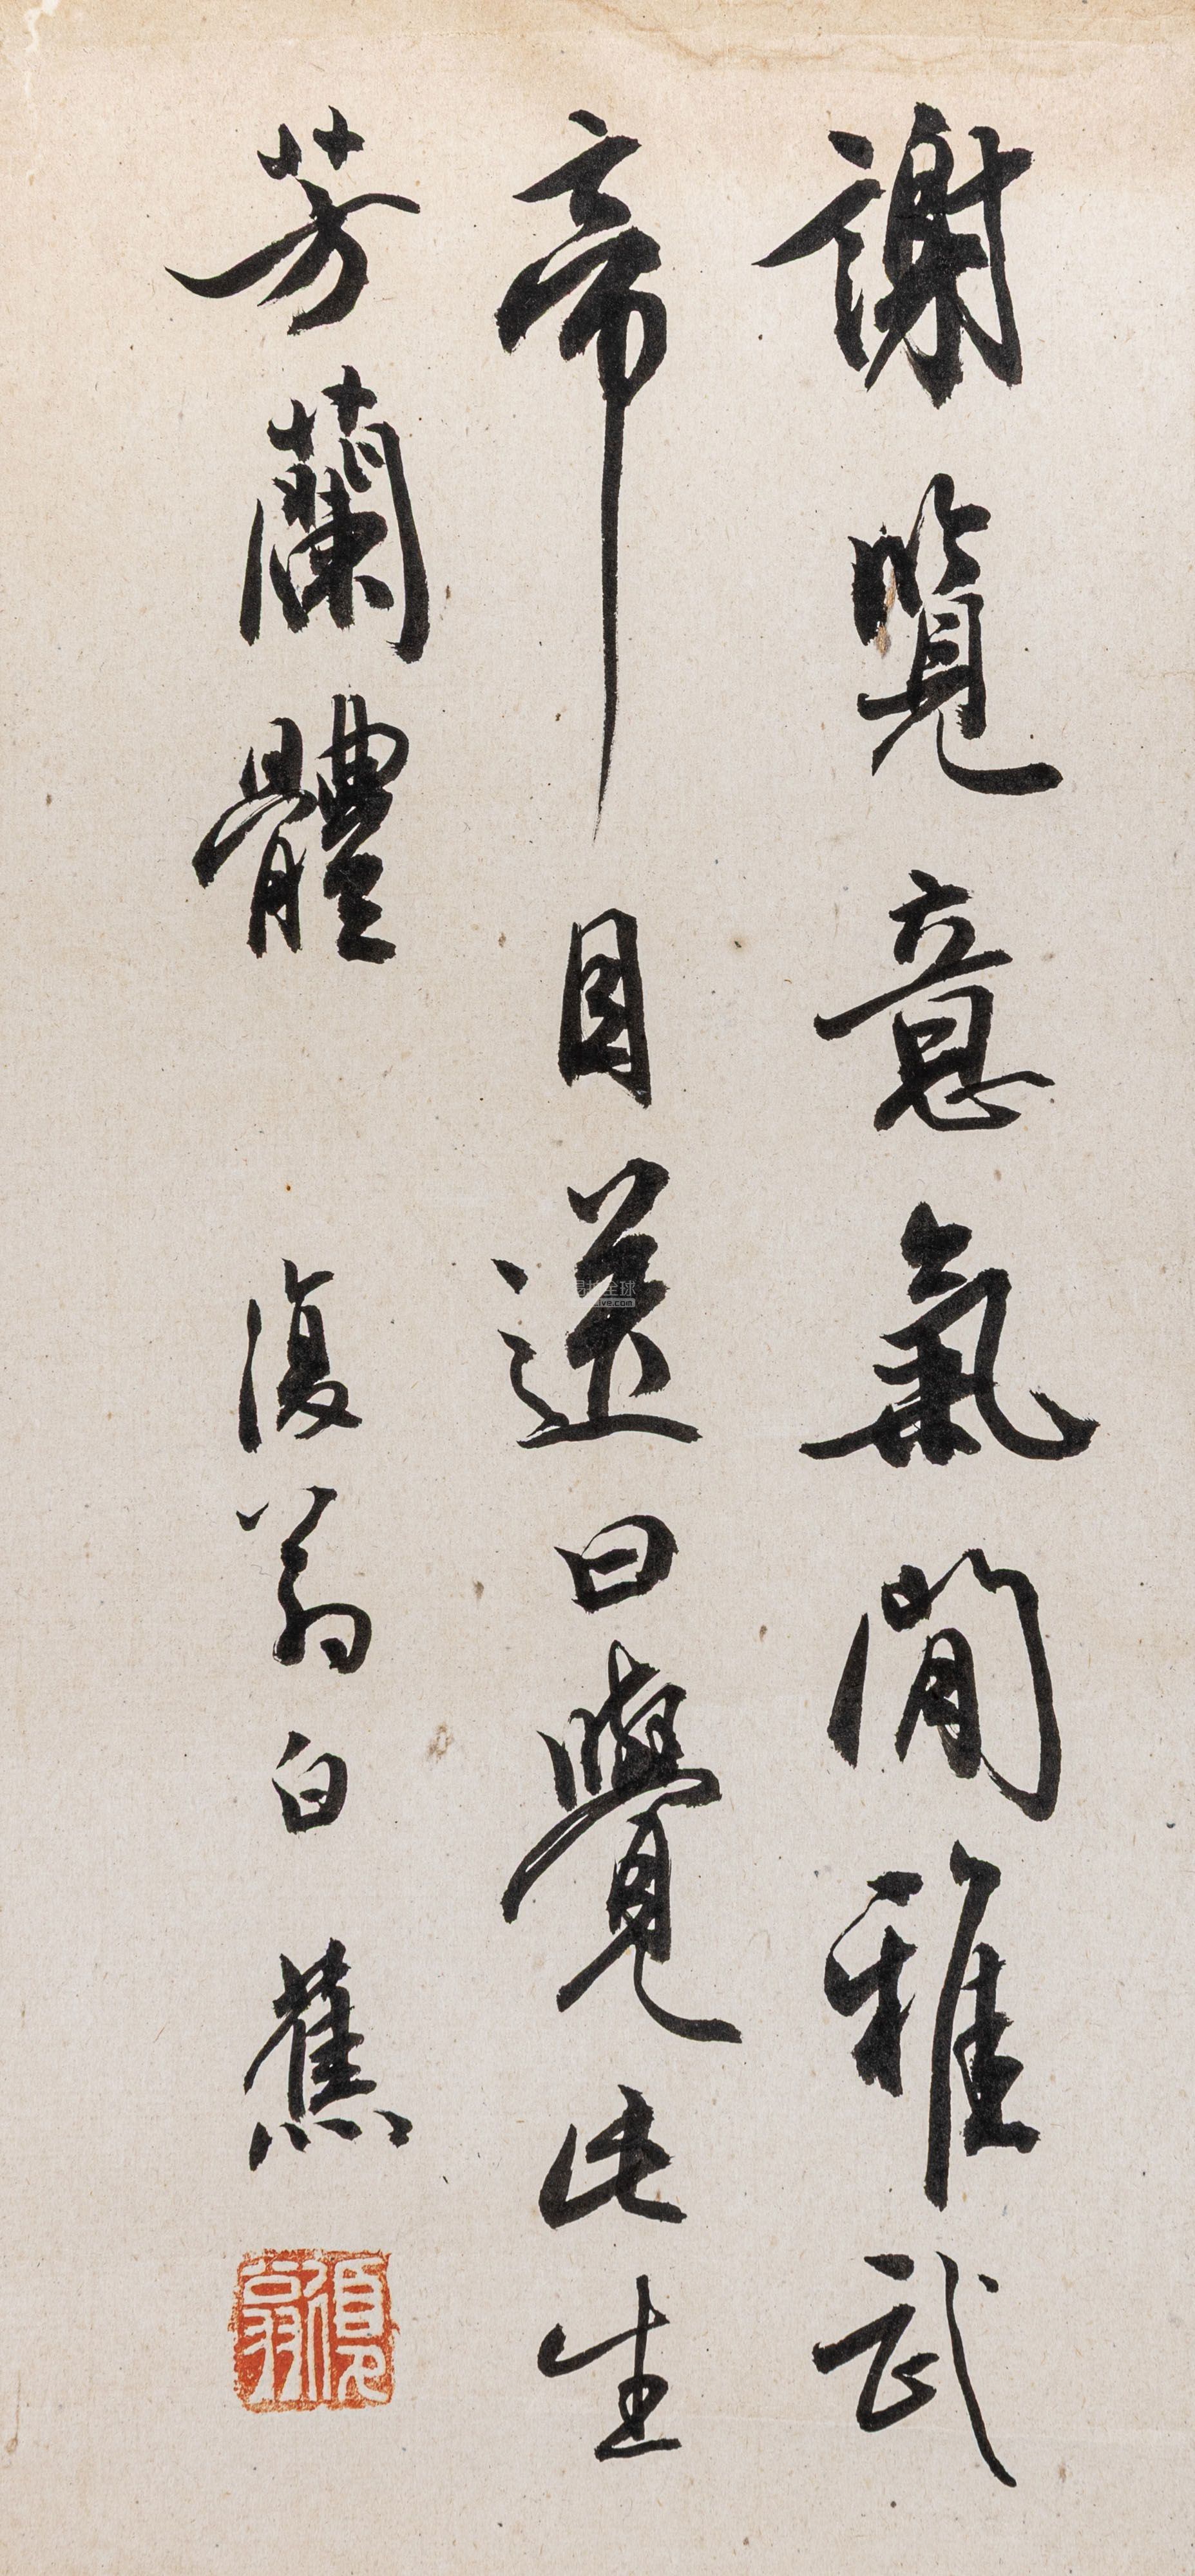 謝覧意氣閒雅武
帝目送曰覺此生
芳蘭體 復翁白蕉
復翁